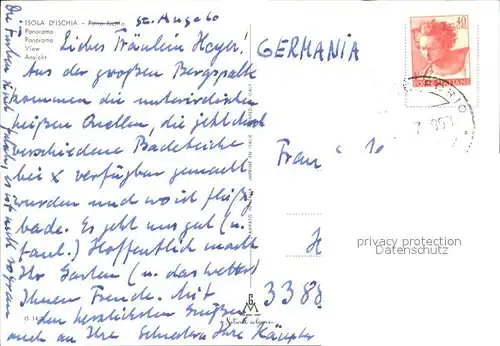 ISOLA D'ISCHIA - Porto Ischia St. Angelo
Panorama
Panorama
View
Ansicht
Liebes Fräulein Heyer!
Aus der großen Bergspalte
kommen die unterirdischen
heißen Quellen, die jetzt durch
verschiedene Badeteiche
bei x verfügbar gemacht
wurden und wo ist
bade. Es geht uns gut (u.
faul.) Hoffentlich macht
Ihr Garten (u. das Wetter)
Ihnen Freude. Mit
den herzlichsten Grüßen
auch an Ihre Schwester Ihre
Die Farben sind falsch, es ist nicht so grün
GERMANIA
Frau
H
338
40
POSTE ITALIANE
FORIO
privacy protection
Datenschutz